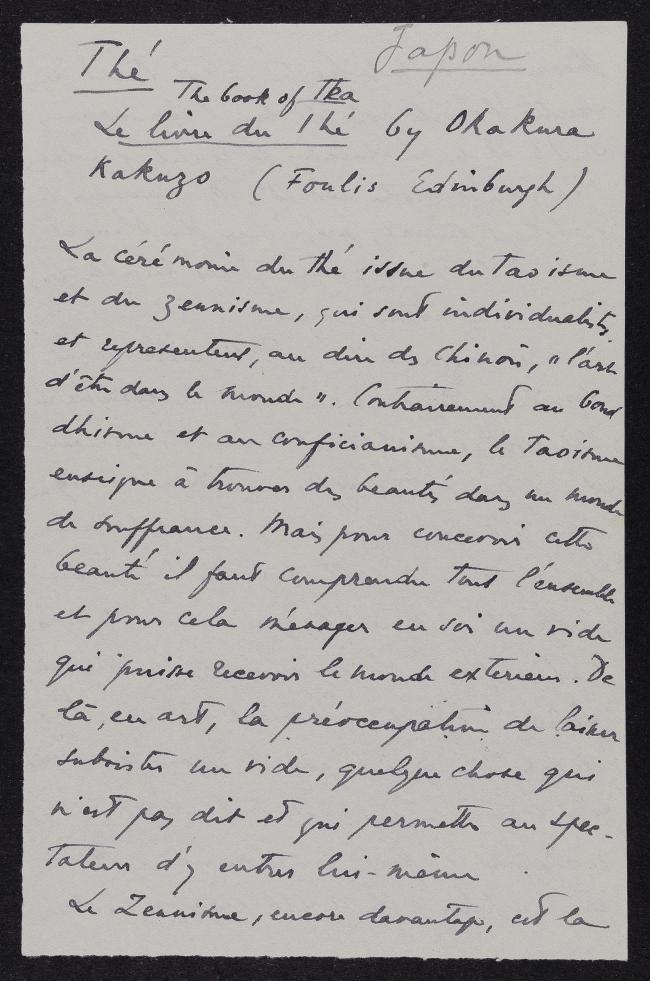 Japon
Thé
The book of Tea
Le livre du Thé by Okakura
Kakuzo (Foulis Edinburgh)
La cérémonie du thé issue du Taoisme
et du zennisme, qui sont individualistes
et representent, au dire des Chinois, "l'art
d'être dans le monde". Contrairement au Boud
dhisme et au conficianisme, le Taoisme
enseigne à trouver des beautés dans un monde
de souffrance. Mais pour concevoir cette
beauté il faut comprendre tout l'ensemble
et pour cela ménager en soi un vide
qui puisse recevoir le monde exterieur. De
là, en art, la préoccupation de laisser
subsister un vide, quelque chose qui
n'est pas dit et qui permette au spec-
tateur d'y entrer lui-même
Le Zennisme, encore davantage, est la